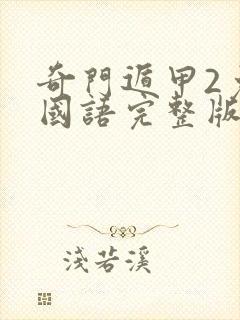 奇門遁甲2
國語完整版
淺若溪